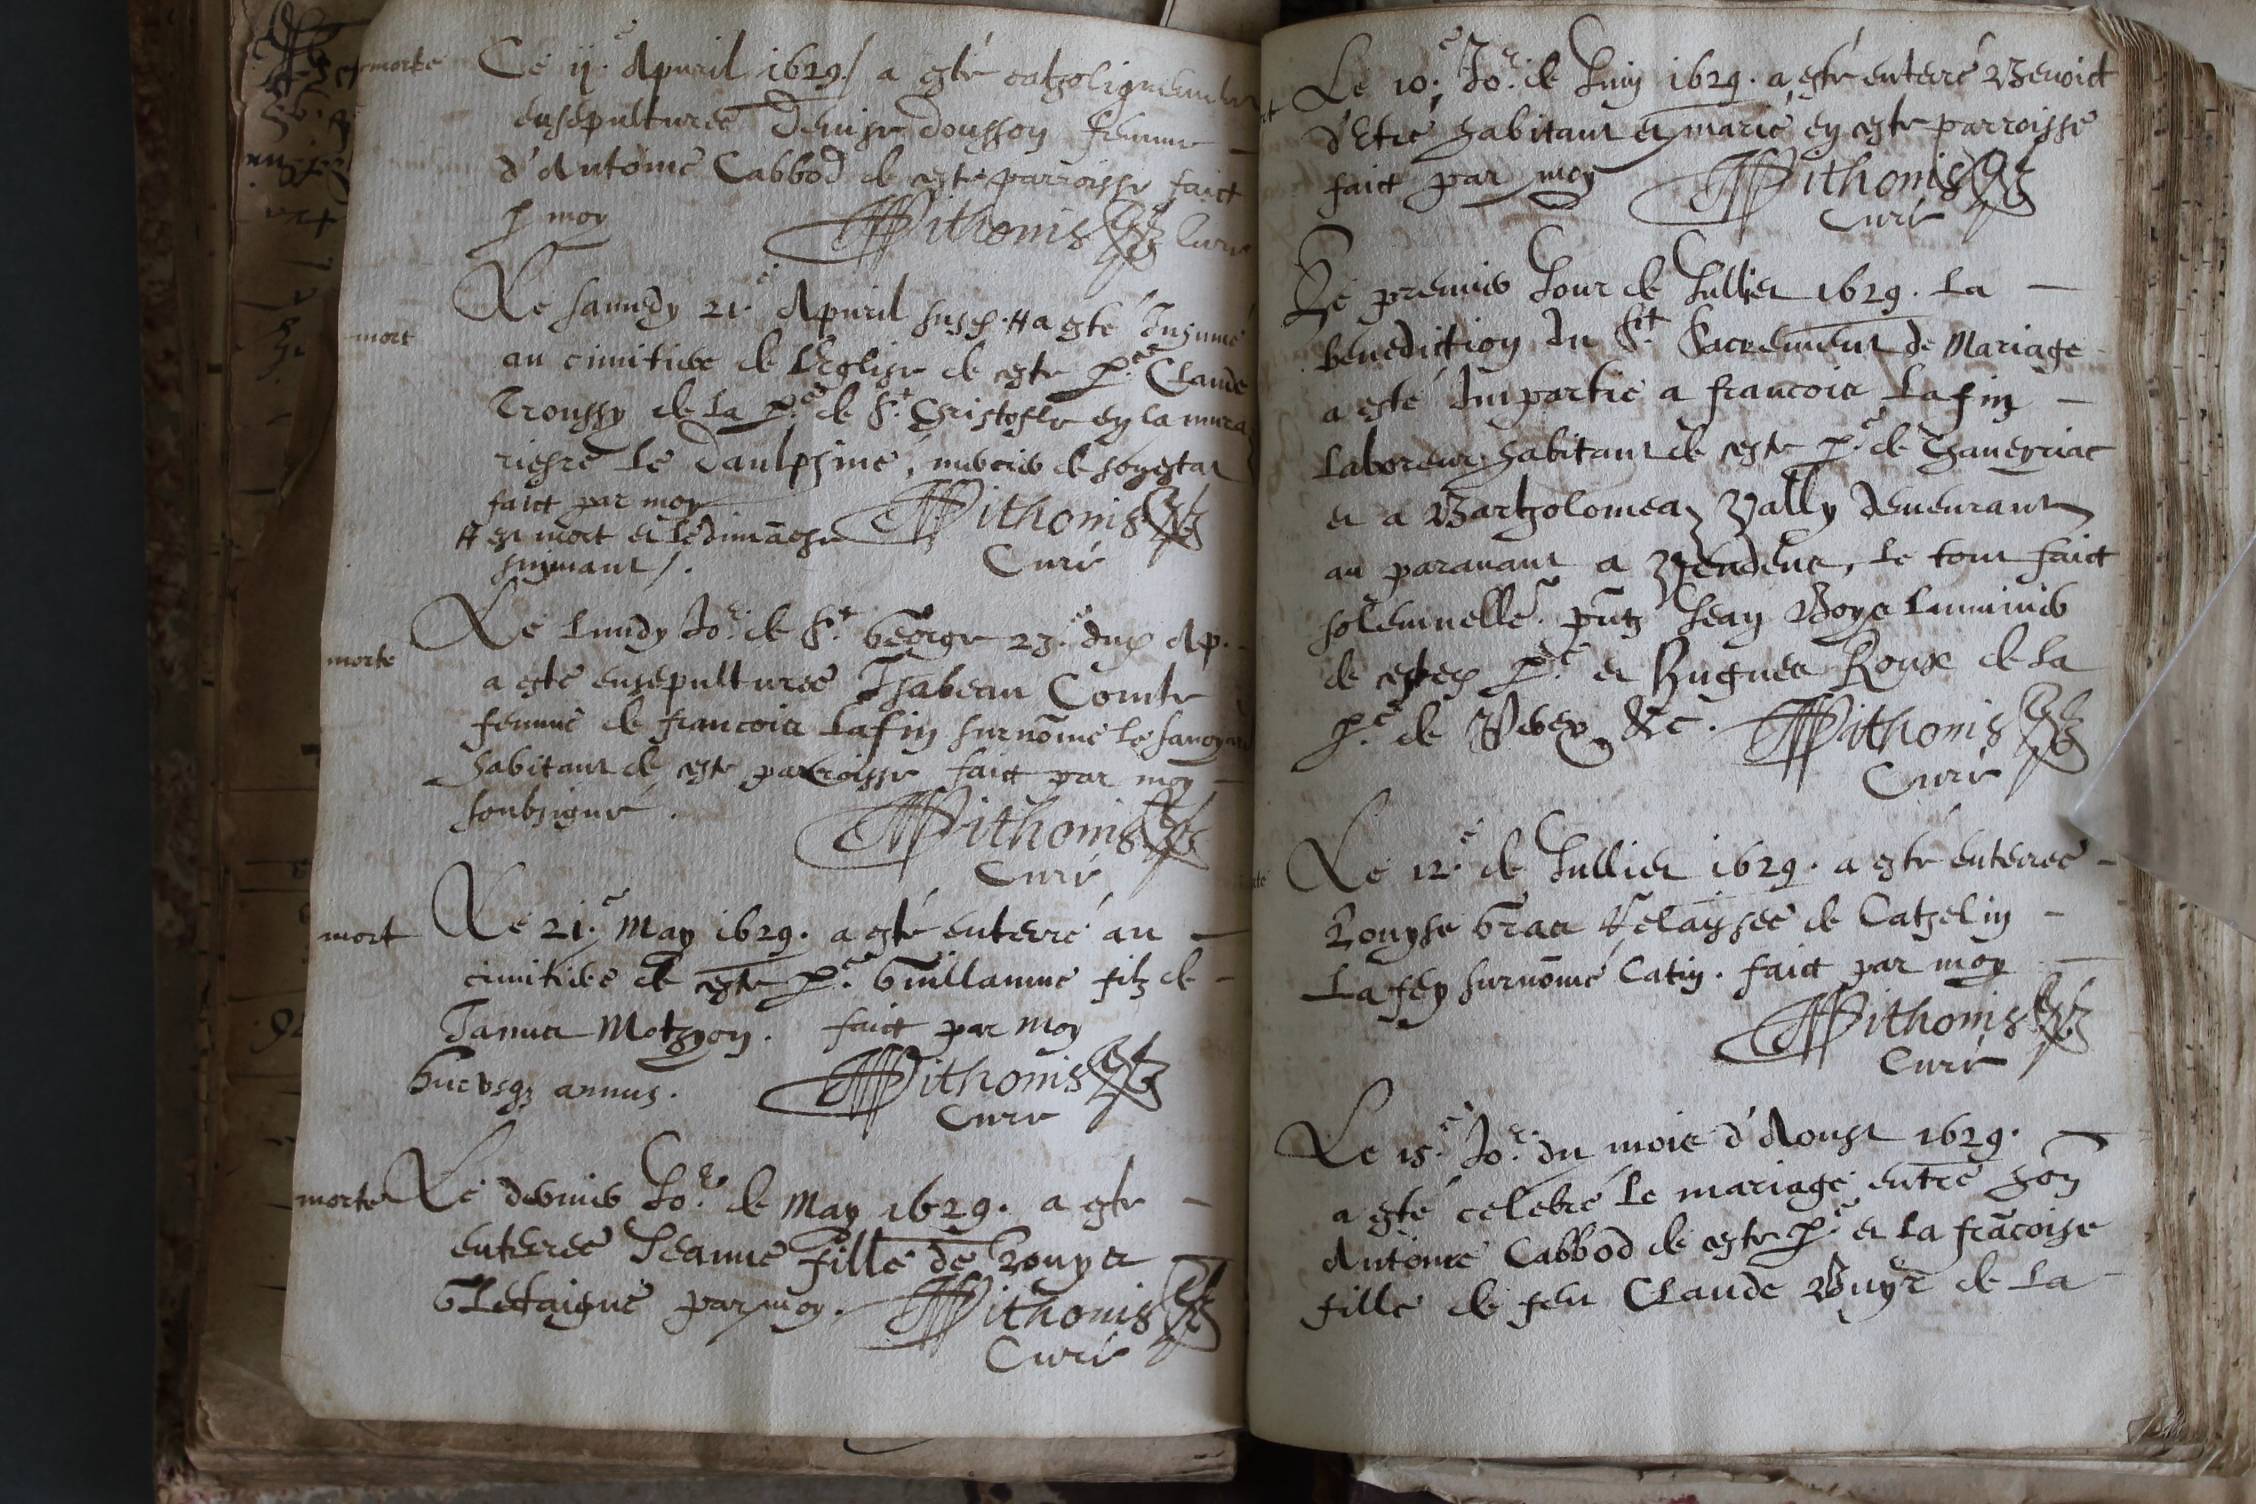 morte
Ce ij.e Apuril 1629 / a esté catholiquement
ensepulturée Denise Dousson femme
d'Antoine Cabbod de ceste parroisse faict
p moy Pithonis Curé
mort
Le samedy 21.e Apuril susd. # a esté Inhumé
au cimitiere de l'Eglise de ceste p.e Claude
Troussy de la p.e de St Christofle en la mura
riehre le Daulphiné, mercier de son estat
faict par moy Pithonis
# est mort et le dimãche Curé
suiuant /.
morte
Le Lundy Jo.r de St George 23.e dud Ap.
a esté ensepulturée Isabeau Comte
femme de francois Lafin surnõmé le sauoyard
habitant de ceste parroisse faict par moy
soubsigné. Pithonis
Curé
mort
Le 21.e May 1629. a esté enterré au
cimitiere de ceste p.e Guillaume filz de
Janus Mothon. faict par moy
huc vsq annus. Pithonis
Curé
morte
Le dernier Jo.r de May 1629. a esté
enterrée Jeanne fille de Louys
Glefaigue par moy. Pithonis
Curé
Le 10.e Jo.r de Juin 1629. a esté enterré Benoict
d'Etré habitant et marié en ceste parroisse
faict par moy Pithonis
Curé
Le premier Jour de Jullier 1629. La
benediction du St Sacrement de Mariage
a esté Impartie a francois Lafin
Laboreur habitant de ceste p.e de Chaueyriac
et a Bartholomea Vally demeurant
au parauant a Vendene, le tout faict
solemnelle. pntz Jean Boys Luminier
de ceste p.e et Hugues Roux de la
p.e de &c. Pithonis
Curé
Le 12.e de Jullier 1629. a esté enterrée
Louyse Gras Relayssée de Cathelin
Lafey surnõmé Catin. faict par moy
Pithonis
Curé
Le 15.e Jo.r du mois d'Aoust 1629.
a esté celebré le mariage entre hon
Antoine Cabbod de ceste p.e et la frãcoise
fille de feu Claude Buyr de la